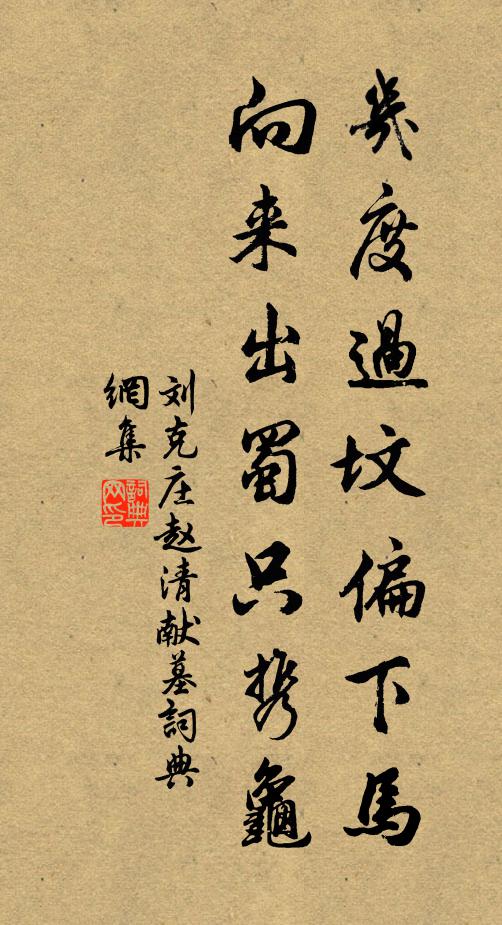 幾度過坟偏下馬
向来出蜀只携龜
刘克庄赵清献墓詞典
網集
詞典
网印